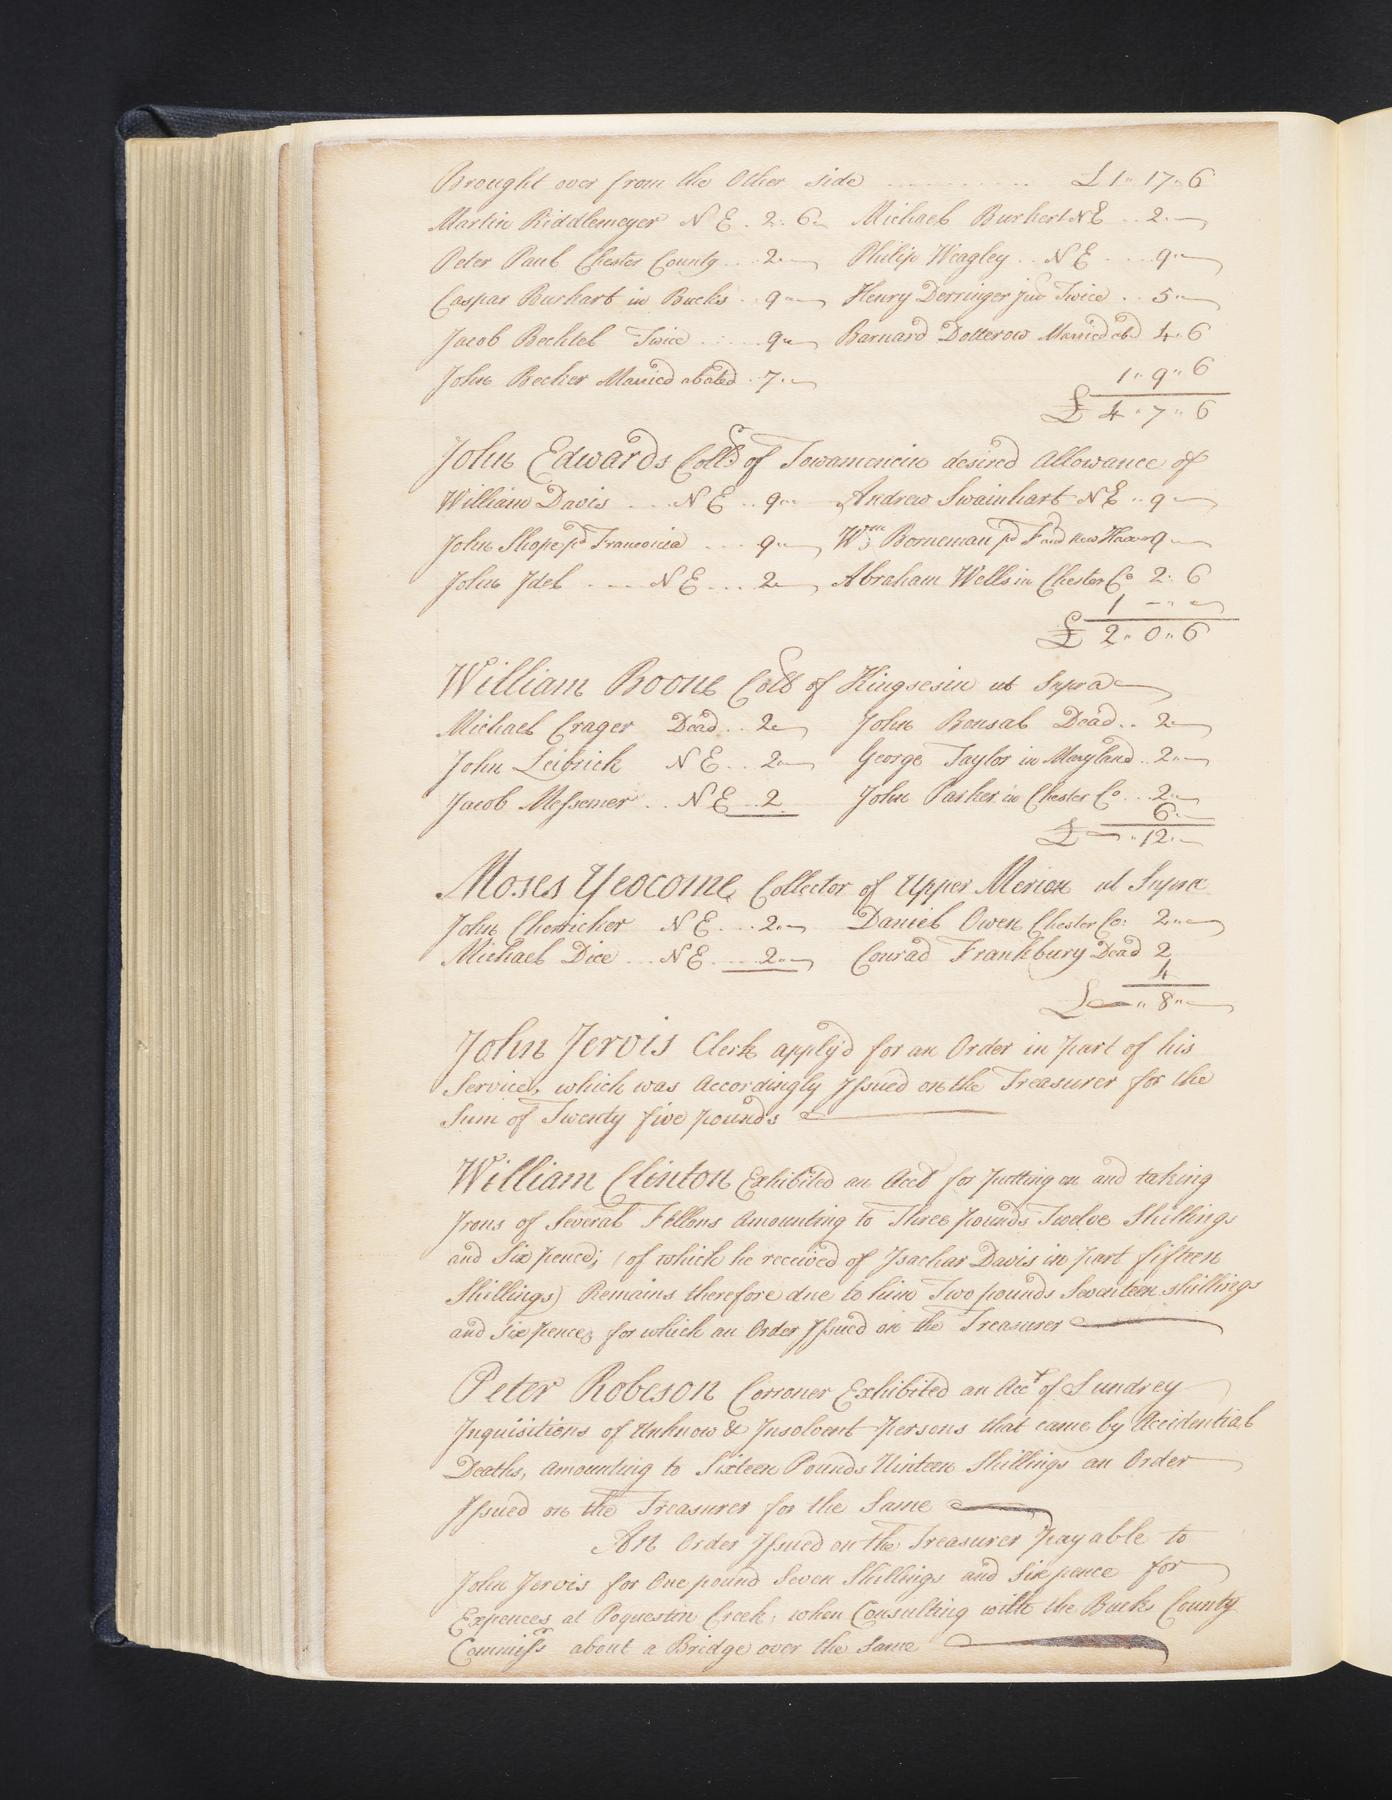 Brought over from the Other side .......... £1" 17" 6
Martin Riddlemeyer N E . 2 . 6 Michael Burkert N E .. 2 . —
Peter Paul Chester County ... 2 . — Philip Weagley .. N E .... 9 " —
Caspar Burkart in Bucks .. 9 — Henry Derringer junr Twice .. 5 " —
Jacob Bechtel Twice ...... 9 " — Barnard Dotterow Married abd 4 . 6
John Becker Married abated . 7 . — 1 " 9 " 6
£ 4 " 7 " 6
John Edwards Collr of Towamencin desired Allowance of
William Davis .... N E .. 9 " — Andrew Swainhart N E .. 9 —
John Shope pd Franconia ... 9 " — Wm Borneman pd F and New Hanor 9 —
John Idel .... N E .... 2 — Abraham Wells in Chester Co 2 . 6
1 — " —
£ 2 " 0 " 6
William Boone Collr of Kingsesin ut Supra —
Michael Crager Dead .. 2 — John Bonsal Dead .. 2 —
John Leibrick N E .. 2 — George Taylor in Maryland .. 2 " —
Jacob Messemer .. N E .. 2 John Parker in Chester Co .. 2 " —
6 " —
£ — " 12 " —
Moses Yeocome Collector of Upper Merion ut Supra
John Cherricker N E ... 2 " — Daniel Owen Chester Co: 2 " —
Michael Dice ... N E ... 2 " — Conrad Frankbury Dead 2
4
£ — " 8 " —
John Jervis Clerk apply'd for an Order in part of his
Service, which was Accordingly Issued on the Treasurer for the
Sum of Twenty five pounds —
William Clinton Exhibited an Acct for putting on and taking
Irons of Several Fellons Amounting to Three pounds Twelve Shillings
and Six pence; (of which he received of Isachar Davis in part fifteen
Shillings) Remains therefore due to him Two pounds Seventeen shillings
and Six pence, for which an Order Issued on the Treasurer —
Peter Robeson Corroner Exhibited an Acct of Sundrey
Inquisitions of Unknow & Insolvent Persons that came by Accidential
Deaths, Amounting to Sixteen Pounds Ninteen Shillings an Order
Issued on the Treasurer for the Same —
An Order Issued on the Treasurer payable to
John Jervis for One pound Seven Shillings and Six pence for
Expences at Poquestin Creek, when Consulting with the Bucks County
Commissrs about a Bridge over the Same —